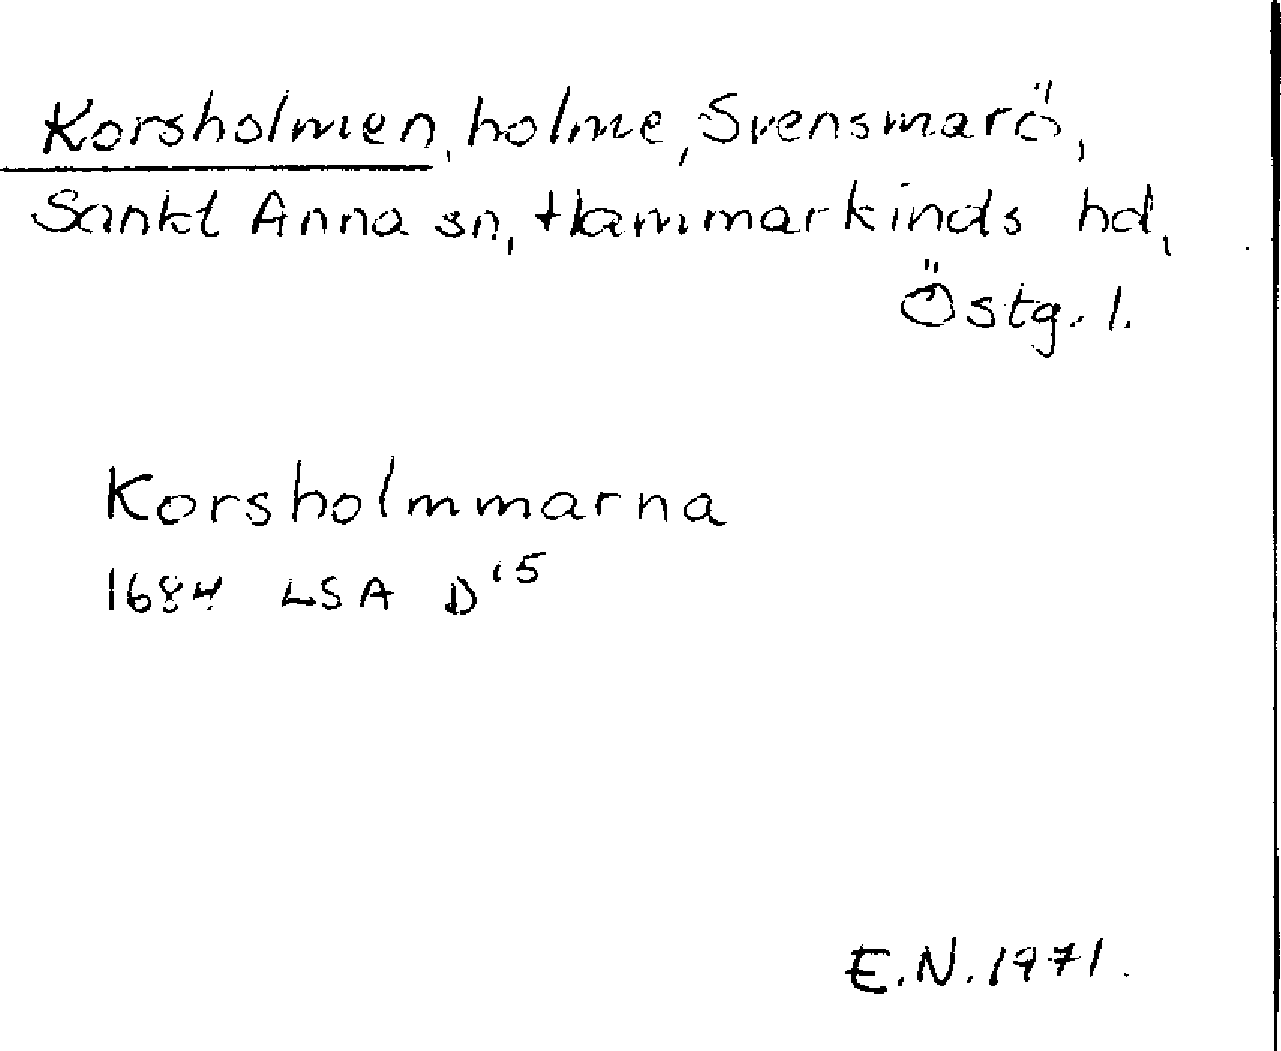 Korsholmen, holme, Svensmarö,
Sankt Anna sn, Hammarkinds hd,
Östg. l.
Korsholmmarna
1684 LSA D¹⁵
E.N. 1971.